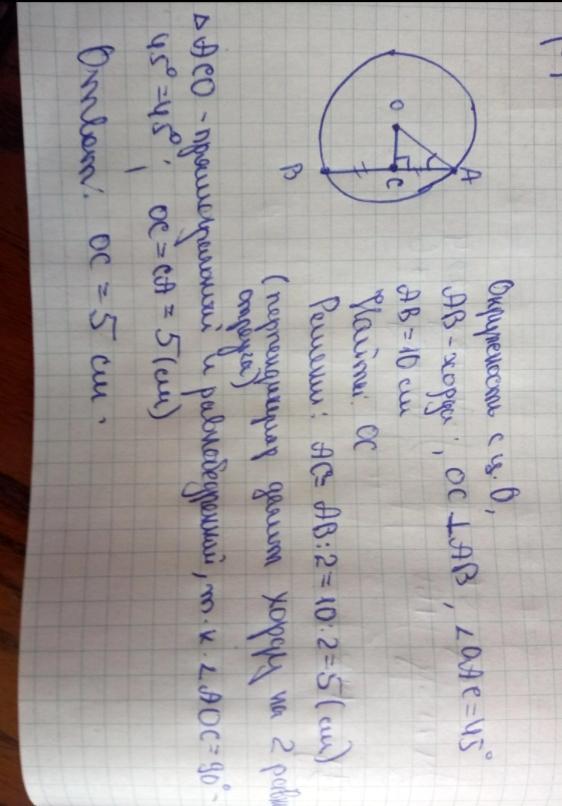 O
C
A
B
Окружность с ц. О,
AB - хорда, OC ⊥ AB, ∠OAC = 45°
AB = 10 см
Найти: OC
Решение: AC = AB : 2 = 10 : 2 = 5 (см)
(перпендикуляр делит хорду на 2 равн
отрезка)
△ ACO - прямоугольный и равнобедренный, т.к. ∠AOC = 90° -
45° = 45°; OC = CA = 5 (см)
Ответ: OC = 5 см.